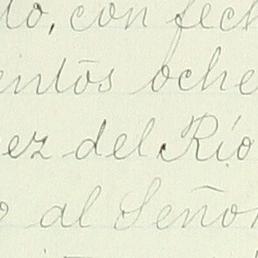 do, con fech
entos oche
ez del Río
o al Seño